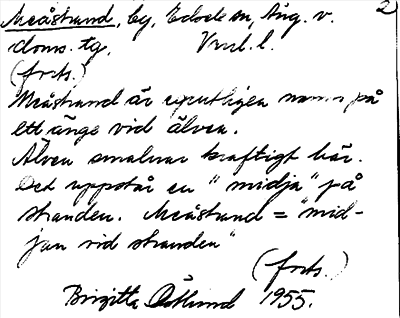 Meåstrand, by, Edsele sn, Ång. v. 2
doms. tg. Vrml. l.
(forts.)
Meåstrand är egentligen namn på
ett änge vid älven.
Älven smalnar kraftigt här.
Det uppstår en "midja" på
stranden. Meåstrand = "mid-
jan vid stranden"
(forts.)
Birgitta Östlund 1955.